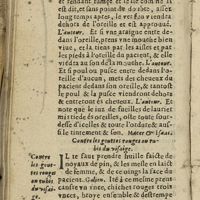 et rendant rampe et la lie con ne la
est dit, ou au col de porc, assez
long temps apres, le ver s'en viendra
dehors de l'oreille et est approuué.
L'auteur. Et si vne araigne entre de-
dans l'oreille, prens vne mouche bien
viue, et la tiens par les aisles et par
les pieds à l'oreille du pacient, et elle
viédra au son de la mouche. L'auteur.
Et si poulx ou pulce entre dedans l'o-
reille d'aucun, mets des cheueux du
pacient dedans son oreille, et tantost
le poul & la pusce viendront dehors
& entreront és cheueux. L'auteur. Et
note que le ius de fueilles de saurt
mistionné és oreilles, oste toute sour-
desse d'icelles & toute l'ordure & aus-
si le tintement & son. Macer & Isaac.
Contre les gouttes rouges au ru-
bis du visaige.
Contre
les gout-
tes rouges
au rubis
du visai-
ge.
IL te faut prendre fueille fraische de
noyaux de pin, & les mesle en laict
de femme, & de ce oingts la face du
pacient. Galien. Itẽ à ce mesmes vaut
cancuis ne vnce, chichet rouges trois
vnces, broye ensemble & destempe